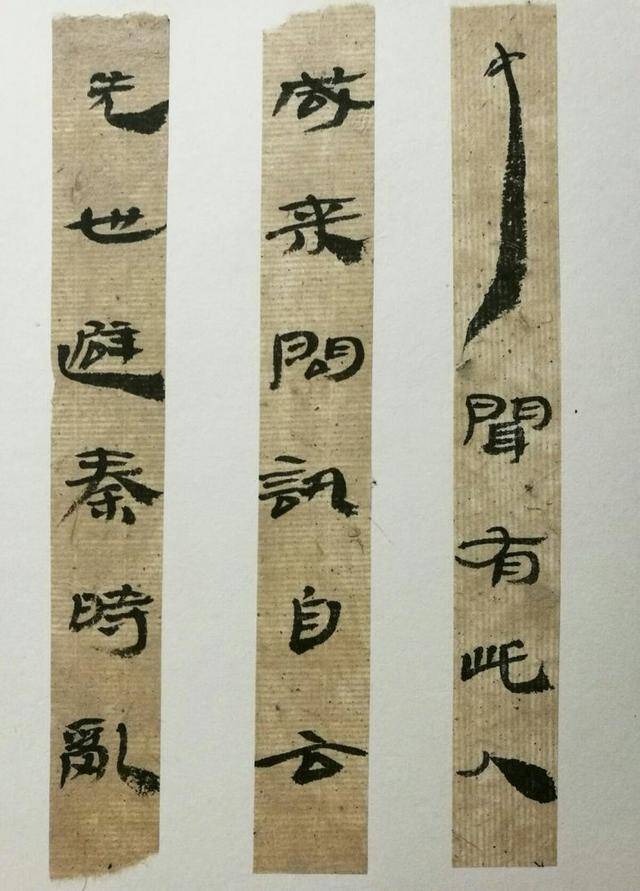 中聞有此人
来問訊自云
先世避秦時亂